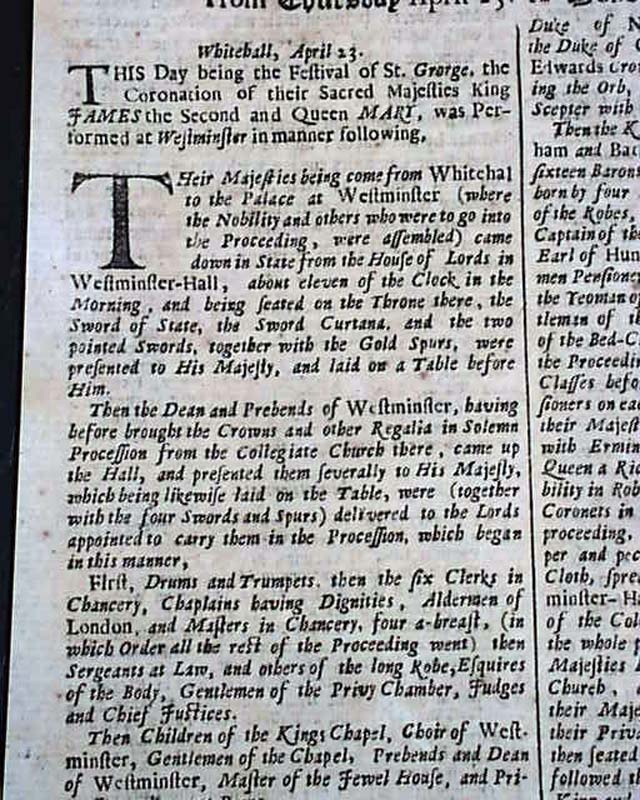 From Thursday April 23. to
Whitehall, April 23.
THIS Day being the Feſtival of St. George, the
Coronation of their Sacred Majeſties King
JAMES the Second and Queen MARY, was Per-
formed at Weſtminſter in manner following,
THeir Majeſties being come from Whitehal
to the Palace at Weſtminſter (where
the Nobility and others who were to go into
the Proceeding, were aſſembled) came
down in State from the Houſe of Lords in
Weſtminſter-Hall, about eleven of the Clock in the
Morning, and being ſeated on the Throne there, the
Sword of State, the Sword Curtana, and the two
pointed Swords, together with the Gold Spurs, were
preſented to His Majeſty, and laid on a Table before
Him.
Then the Dean and Prebends of Weſtminſter, having
before brought the Crowns and other Regalia in Solemn
Proceſſion from the Collegiate Church there, came up
the Hall, and preſented them ſeverally to His Majeſty,
which being likewiſe laid on the Table, were (together
with the four Swords and Spurs) delivered to the Lords
appointed to carry them in the Proceſſion, which began
in this manner,
Firſt, Drums and Trumpets, then the ſix Clerks in
Chancery, Chaplains having Dignities, Aldermen of
London, and Maſters in Chancery, four a-breaſt, (in
which Order all the reſt of the Proceeding went) then
Sergeants at Law, and others of the long Robe, Eſquires
of the Body, Gentlemen of the Privy Chamber, Judges
and Chief Juſtices.
Then Children of the Kings Chapel, Choir of Weſt-
minſter, Gentlemen of the Chapel, Prebends and Dean
of Weſtminſter, Maſter of the Jewel Houſe, and Pri-
Duke of N
the Duke of
Edwards Cro
ing the Orb,
Scepter with
Then the K
ham and Bat
ſixteen Barons
born by four
of the Robes,
Captain of the
Earl of Hun
men Penſione
the Yeoman of
tleman of th
of the Bed-C
the Proceedin
Claſſes befo
ſioners on ea
their Majeſt
with Ermin
Queen a Ric
bility in Rob
Coronets in
proceeding,
per and pec
Cloth, ſpre
minſter-Ha
of the Col
the whole p
Majeſties
Church,
their Maje
their Priva
then ſeated
followed th